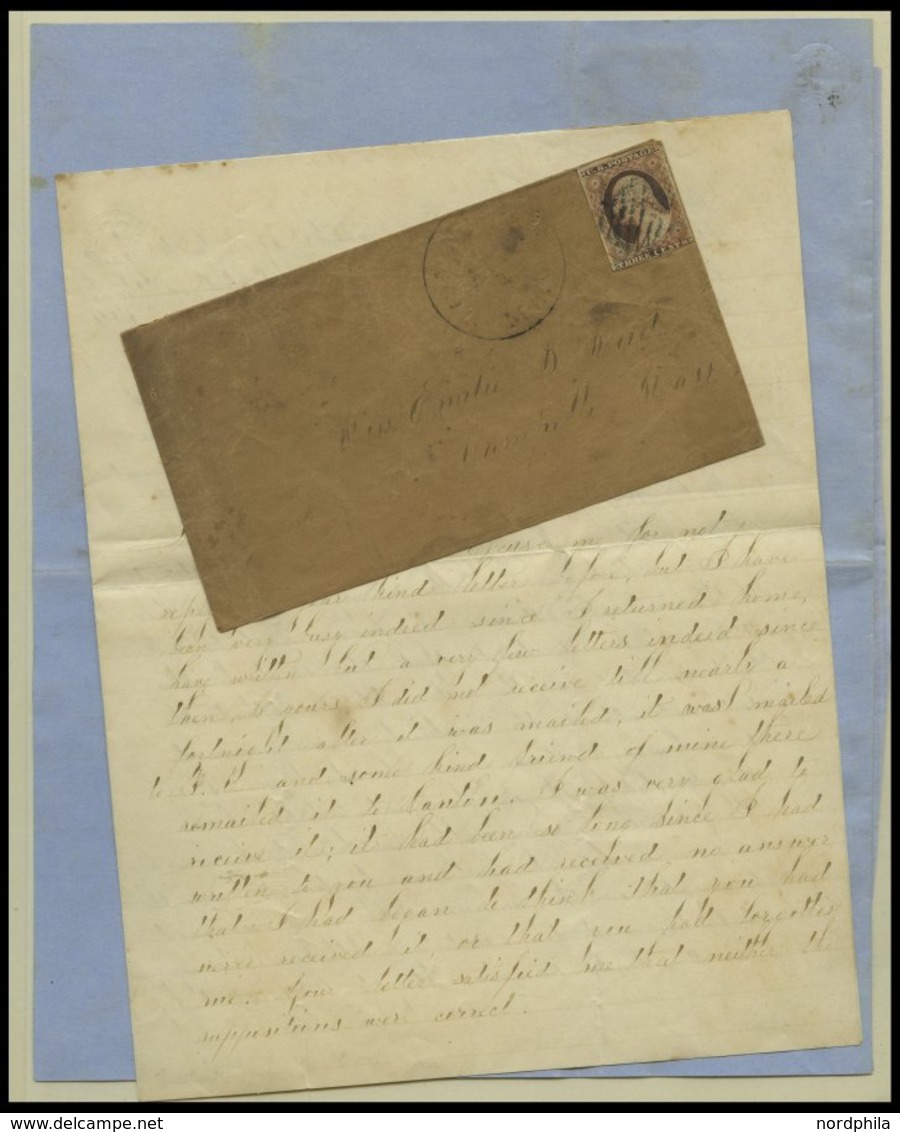 U.S. POSTAGE
THREE CENTS
Miss Emilie D
Mass
Excuse me for not
your kind letter before, but I have
been very busy indeed since I returned home,
have written but a very few letters indeed since
then, & yours I did not receive till nearly a
fortnight after it was mailed, it was mailed
to and some kind friend of mine there
remailed it to Canton. I was very glad to
receive it; it had been so long since I had
written to you and had received no answer
that I had began to think that you had
never received it or that you had forgotten
me. Your letter satisfied me that neither the
suppositions were correct.
nordphila
nordphila.com